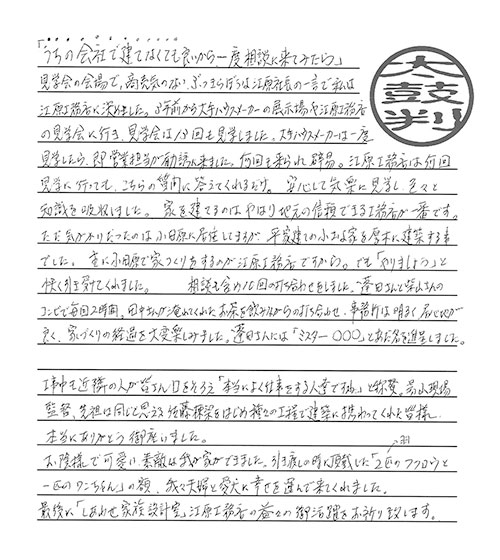 「うちの会社で建てなくても良いから一度相談に来てみたら」
見学会の会場で、商売気のない、ぶっきらぼうな江原社長の一言で私は
江原工務店に決めました。3年前から大手ハウスメーカーの展示場や江原工務店
の見学会に行き、見学会は13回も見学しました。大手ハウスメーカーは一度
見学したら、即営業担当が勧誘に来ました。何回も来られ辟易。江原工務店は何回
見学に行っても、こちらの質問に答えてくれるだけ。 安心して気楽に見学し色々と
知識を吸収しました。 家を建てるのはやはり地元の信頼できる工務店が一番です。
ただ気がかりだったのは小田原に居住してますが、平家建ての小さな家を厚木に建築する事
でした。 主に小田原で家づくりをするのが江原工務店ですから。でも「やりましょう」と
快く引き受てくれました。 相談も含め16回の打ち合わせをしました。蓬田さんと柴山さんの
コンビで毎回2時間、田中さんが淹れてくれたお茶を飲みながらの打ち合わせ、事務所は明るく居心地が
良く、家づくりの経過を大変楽しみました。蓬田さんには「ミスター○○○」とあだ名を進呈しました。
工事中も近隣の人が皆さん口をそろえ「本当によく仕事をする人達ですね」と称賛。 現場
監督、先祖は同じと思える佐藤棟梁をはじめ種々の工程で建築に携わってくれた皆様
本当にありがとう御座いました。
お陰様で可愛い素敵な我が家ができました。引き渡しの時に頂戴した「2羽のフクロウと
一匹のワンちゃん」の額、我々夫婦と愛犬に幸せを運んで来てくれました。
最後に「しあわせ家族設計室」江原工務店の益々の御活躍をお祈り致します。
太鼓判